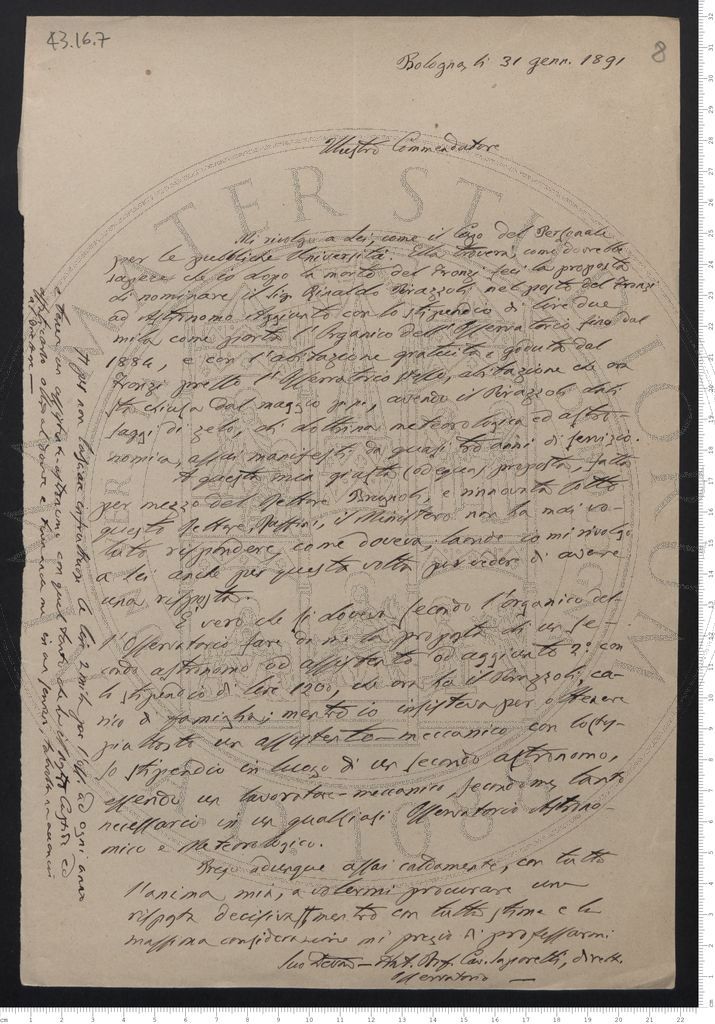 43.16.7
8
Bologna, li 31 genn. 1891
Illustro Commendatore
Mi rivolgo a Lei, come il Capo del Personale
per le pubbliche Università. Ella troverà, come dovrebbe
sapere che io dopo la morte del Fronzi feci la proposta
di nominare il Sig. Rinaldo Pirazzoli nel posto del Fronzi
ad Astronomo Aggiunto con lo stipendio di lire due
mila come porta l'Organico dell'Osservatorio fino dal
1884, e con l'abitazione gratuita e goduta dal
Fronzi presso l'Osservatorio stesso, abitazione che ora
sta chiusa dal maggio avendo il Pirazzoli dati
saggi di zelo, di dottrina meteorologica ed astro-
nomica, assai manifesti da quasi tre anni di servizio.
A questa mia giusta ed equa proposta, fatta
per mezzo del Rettore e rinnovata sotto
questo Rettore, Puffini, il Ministero non ha mai vo-
luto rispondere, come doveva, laonde io mi rivolgo
a Lei anche per questa volta per vedere di avere
una risposta.
È vero che si doveva secondo l'organico del-
l'Osservatorio fare da me la proposta di un se-
condo astronomo od assistente od aggiunto 2º con
lo stipendio di lire 1200, che ora ha il Pirazzoli, ca-
rico di famiglia; mentre io insisteva per ottenere
piuttosto un assistente-meccanico con lo ste-
so stipendio in luogo di un secondo astronomo,
essendo un lavorista-meccanico, secondo me, tanto
necessario in un qualsiasi Osservatorio Astrono-
mico e Meteorologico.
Prego adunque assai caldamente, con tutta
l'anima mia, a volermi procurare una
risposta decisiva mentre con tutta stima e la
massima considerazione mi pregio di professarmi
Suo Dev. Prof. Cav. Saporetti, dirett.
Osservatorio
per non lasciar le lire 2 mila per ad ogni anno
e con quel
ed
al Direttore —